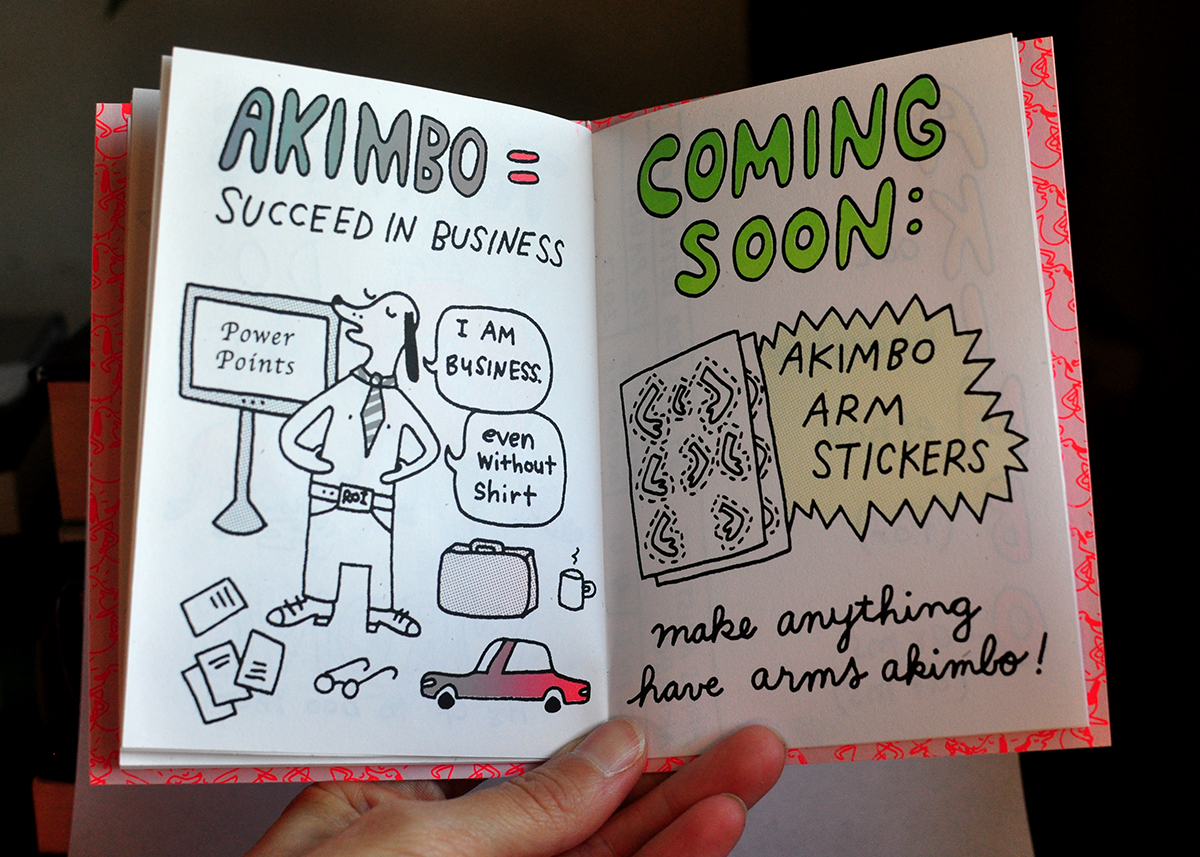 AKIMBO =
SUCCEED IN BUSINESS
Power
Points
I AM
BUSINESS.
even
without
Shirt
ROI
COMING
SOON:
AKIMBO
ARM
STICKERS
make anything
have arms akimbo!